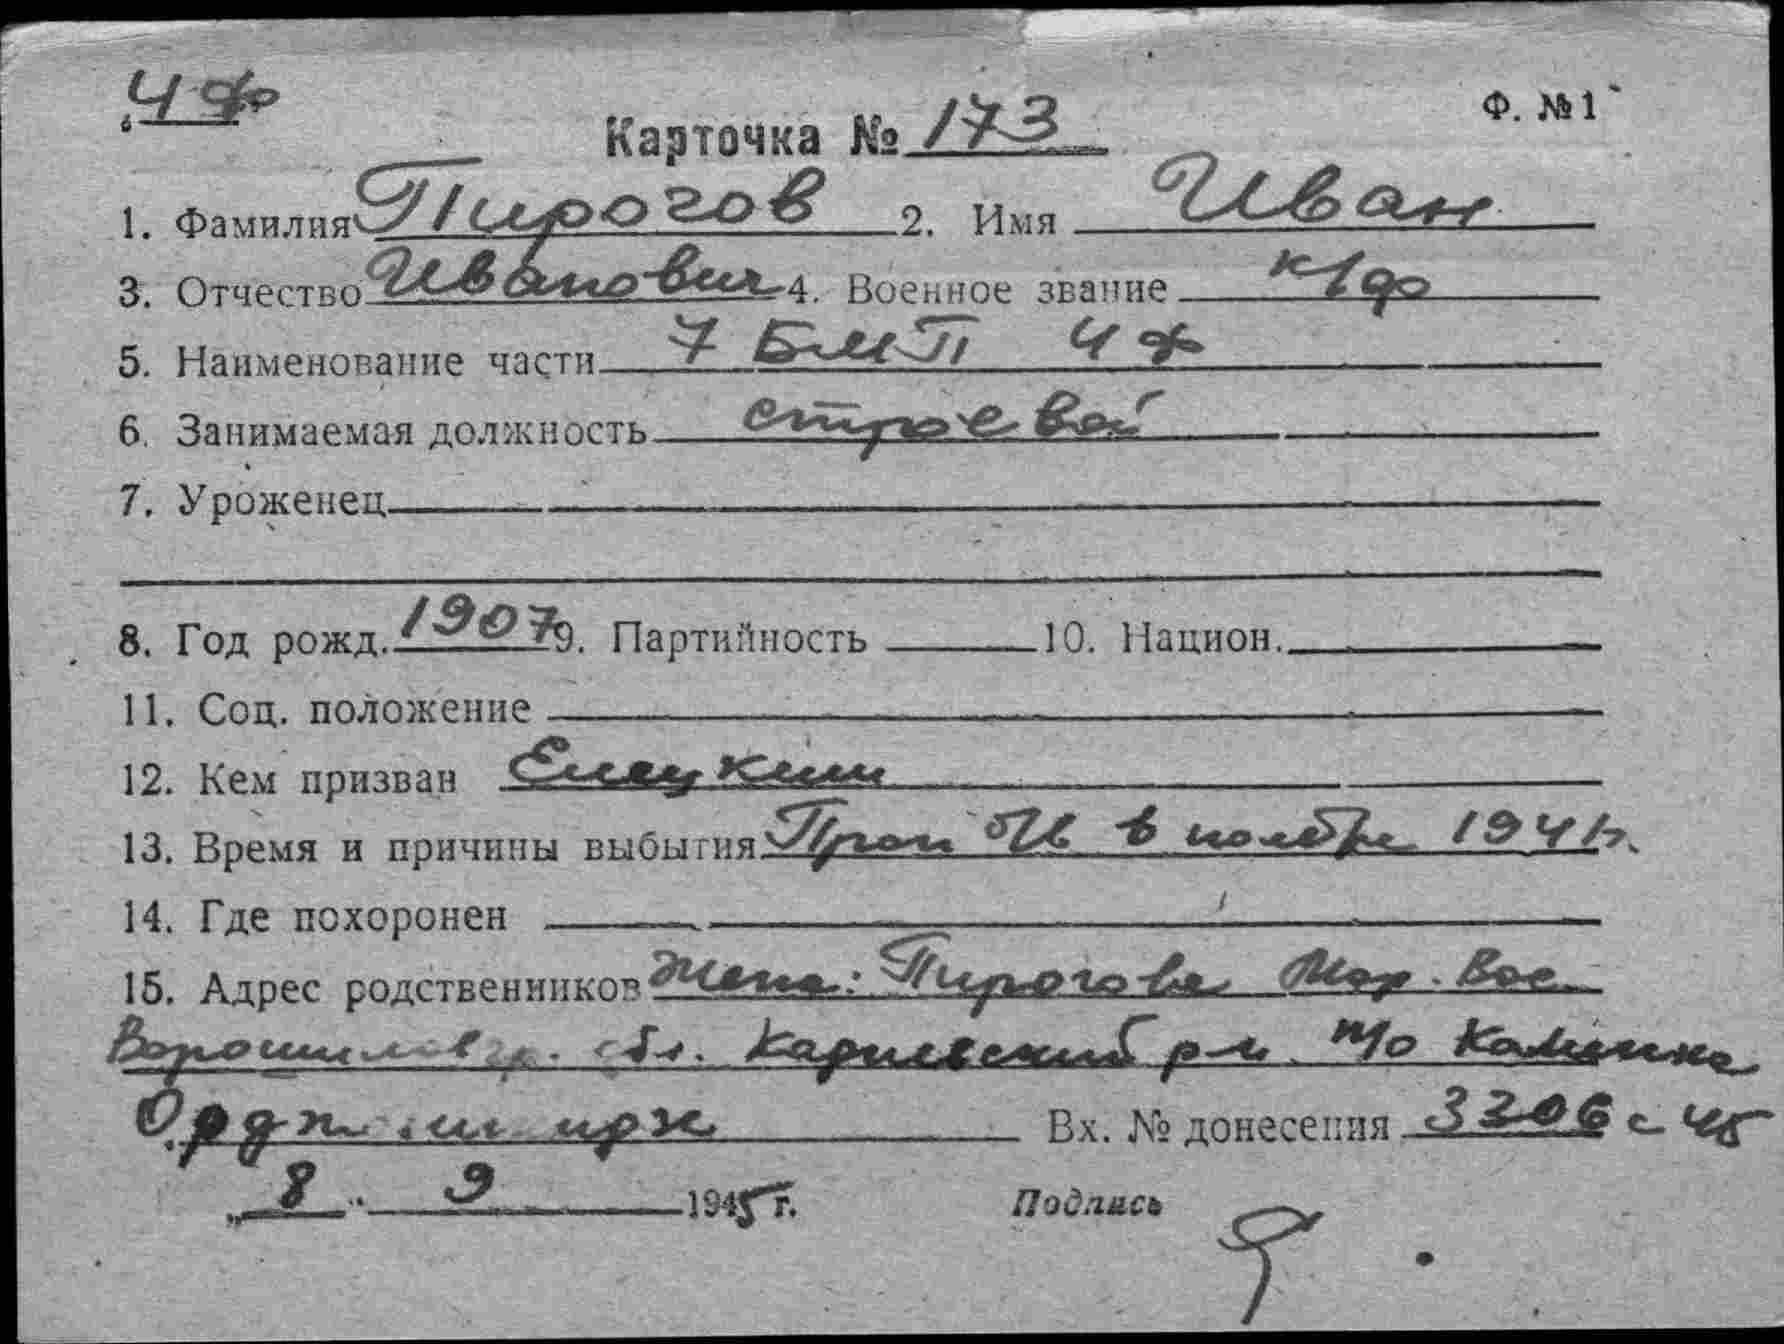 ЧФ
Ф. №1
Карточка № 173
1. Фамилия Пирогов 2. Имя Иван
3. Отчество Иванович 4. Военное звание к/ф
5. Наименование части 7 БМП ЧФ
6. Занимаемая должность строевой
7. Уроженец
8. Год рожд. 1907 9. Партийность 10. Национ.
11. Соц. положение
12. Кем призван Елецким
13. Время и причины выбытия Проп в ноябре 1941г.
14. Где похоронен
15. Адрес родственников Жена: Пирогова Мар. Вас
Ворошиловгр. обл. Кадиевский р-н п/о Калинина
Вх. № донесения 3206 с 45
„8“ 9 1945 г. Подпись